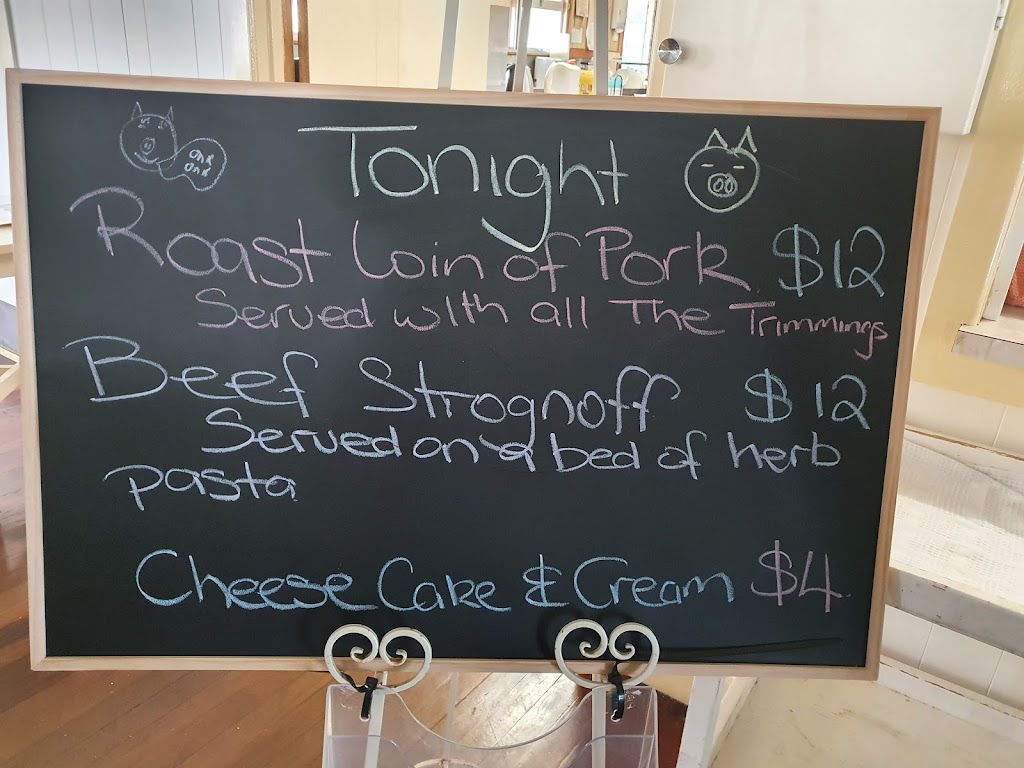 Tonight
onk
onk
Roast Loin of Pork $12
Served with all The Trimmings
Beef Strognoff $12
Served on a bed of herb
pasta
Cheese Cake & Cream $4